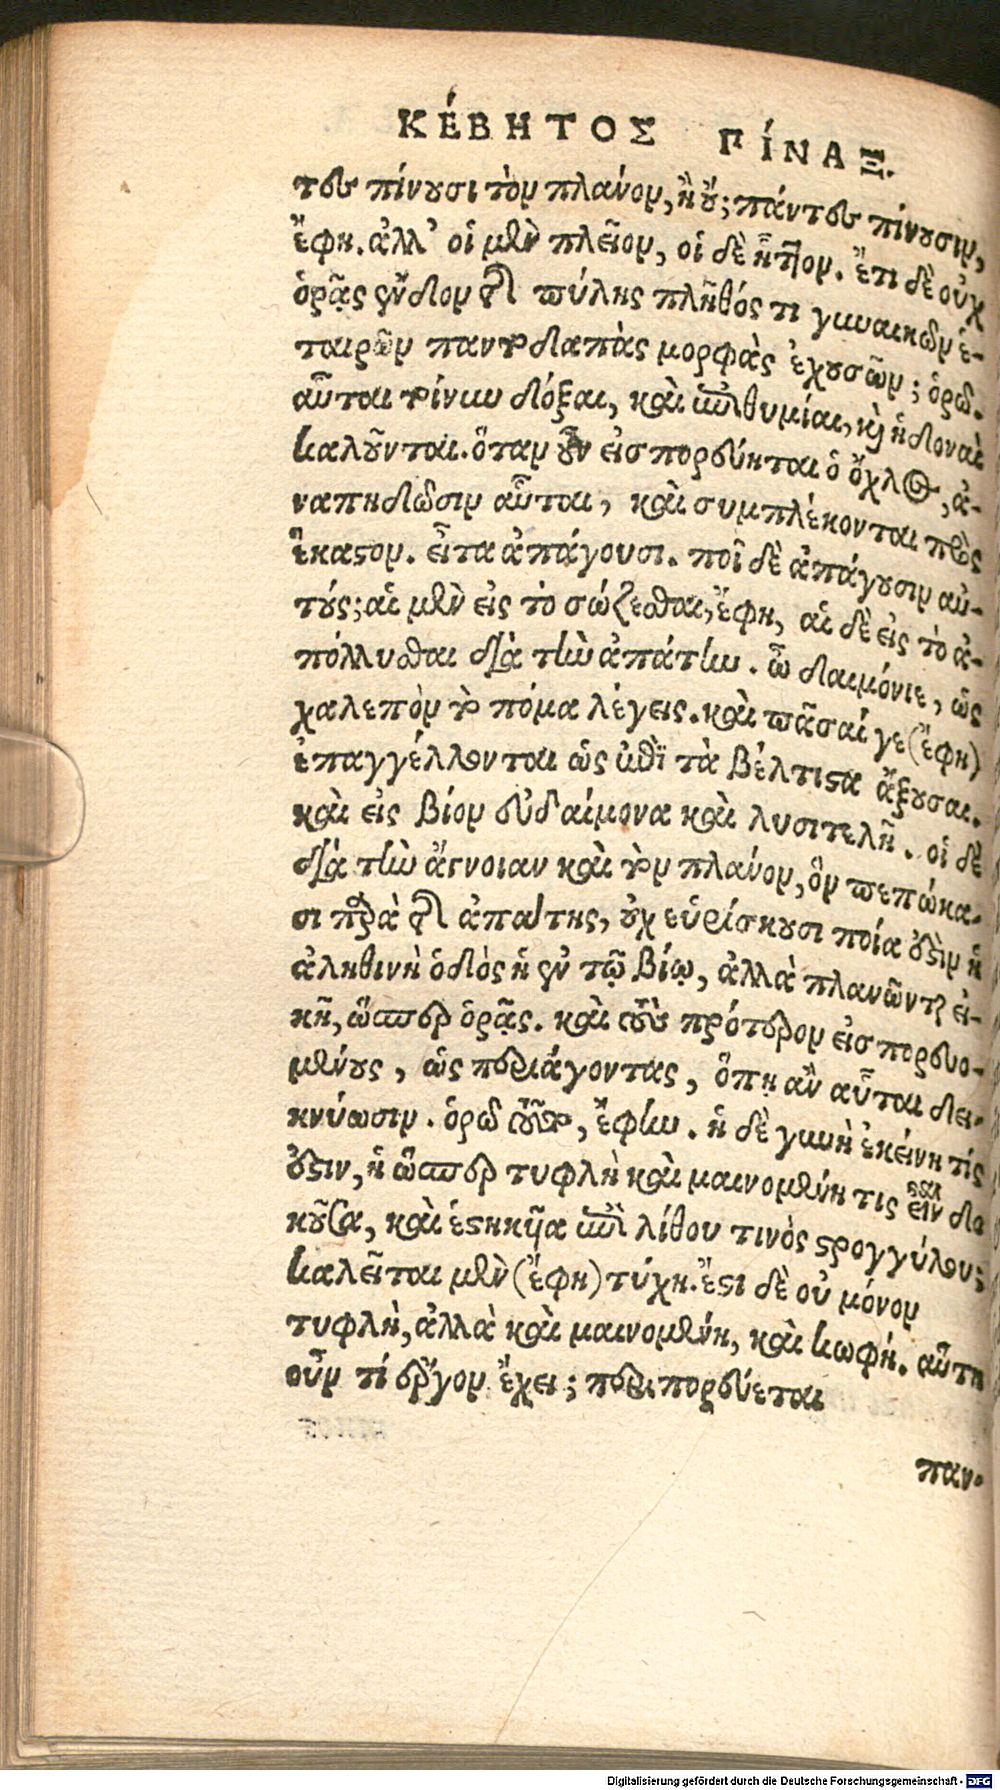 ΚΈΒΗΤΟΣ ΠΊΝΑΞ.
τες πίνουσι τὸν πλάνον, ἢ οὔ; πάντες πίνουσιν,
ἔφη. ἀλλ' οἱ μὲν πλεῖον, οἱ δὲ ἧττον. ἔτι δὲ οὐχ
ὁρᾷς ἔνδον τῆς πύλης πλῆθός τι γυναικῶν ἑ-
ταιρῶν παντοδαπὰς μορφὰς ἐχουσῶν; ὁρῶ.
αὗται τοίνυν δόξαι, καὶ ἐπιθυμίαι, καὶ ἡδοναὶ
καλοῦνται. ὅταν οὖν εἰσπορεύηται ὁ ὄχλος, ἀ-
ναπηδῶσιν αὗται, καὶ συμπλέκονται πρὸς
ἕκαστον. εἶτα ἀπάγουσι. ποῖ δὲ ἀπάγουσιν αὐ-
τούς; αἱ μὲν εἰς τὸ σώζεσθαι, ἔφη, αἱ δὲ εἰς τὸ ἀ-
πόλλυσθαι διὰ τὴν ἀπάτην. ὦ δαιμόνιε, ὡς
χαλεπὸν τὸ πόμα λέγεις. καὶ πᾶσαί γε (ἔφη)
ἐπαγγέλλονται ὡς ἐπὶ τὰ βέλτιστα ἄξουσαι.
καὶ εἰς βίον εὐδαίμονα καὶ λυσιτελῆ. οἱ δὲ
διὰ τὴν ἄγνοιαν καὶ τὸν πλάνον, ὃν πεπώκα-
σι παρὰ τῆς ἀπάτης, οὐχ εὑρίσκουσι ποία ἐστὶν ἡ
ἀληθινὴ ὁδὸς ἡ ἐν τῷ βίῳ, ἀλλὰ πλανῶνται εἰ-
κῆ, ὥσπερ ὁρᾷς. καὶ τοὺς πρότερον εἰσπορευο-
μένους, ὡς περιάγοντας, ὅπῃ ἂν αὗται δει-
κνύωσιν. ὁρῶ τούτους, ἔφην. ἡ δὲ γυνὴ ἐκείνη τίς
ἐστιν, ἡ ὥσπερ τυφλὴ καὶ μαινομένη τις εἶναι δο
κοῦσα, καὶ ἑστηκῦα ἐπὶ λίθου τινὸς στρογγύλου;
καλεῖται μὲν (ἔφη) τύχη. ἔστι δὲ οὐ μόνον
τυφλὴ, ἀλλὰ καὶ μαινομένη, καὶ κωφή. αὕτη
οὖν τί ἔργον ἔχει; περιπορεύεται
παν-
Digitalisierung gefördert durch die Deutsche Forschungsgemeinschaft - DFG